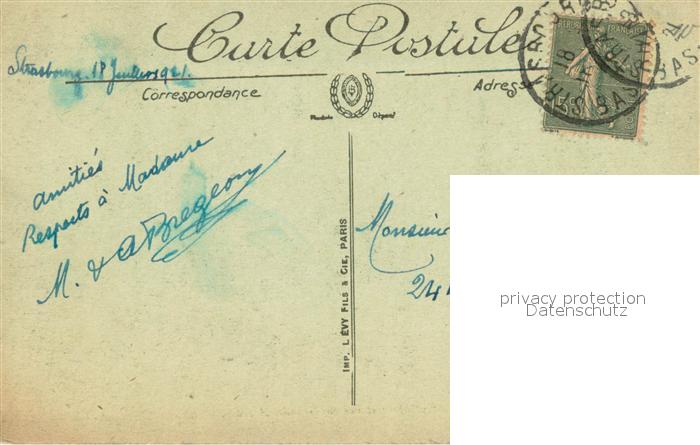 Carte Postale
Strasbourg, 18 Juillet 1921.
Correspondance
Adresse
Modèle Déposé
RÉPUBLIQUE FRANÇAISE
STRASBOURG
BAS
18
15c
amitiés
Respects à Madame
M. & A Bregeon
Monsieur
24
IMP. LÉVY FILS & CIE, PARIS
privacy protection
Datenschutz